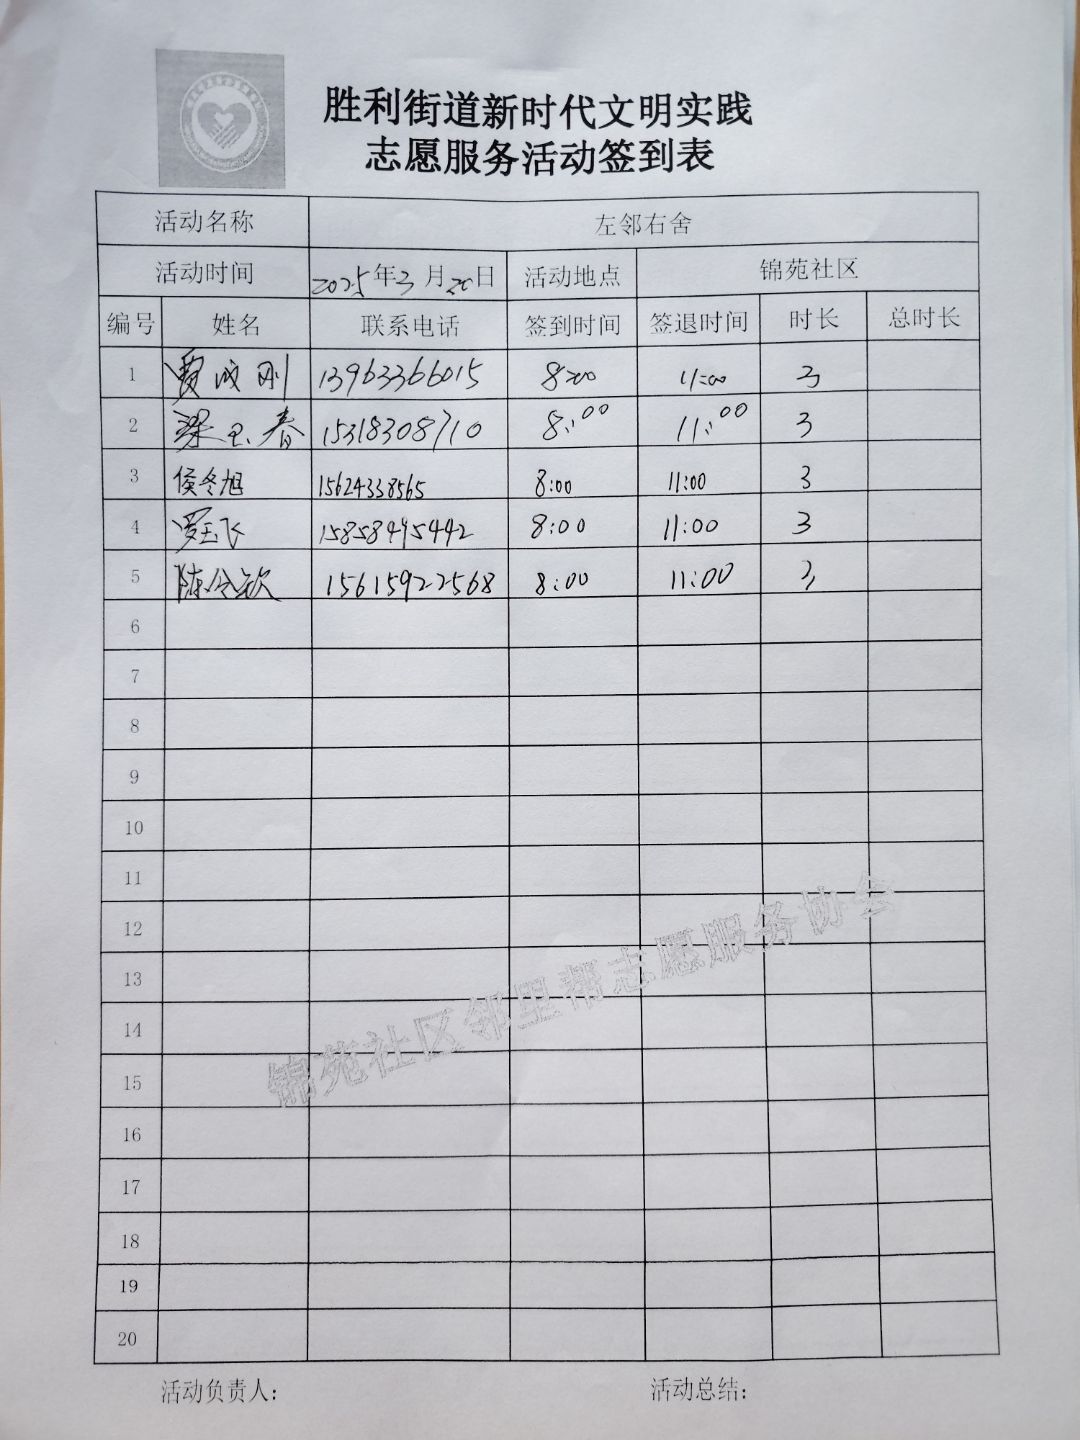 胜利街道新时代文明实践
志愿服务活动签到表
活动名称 左邻右舍
活动时间 2025年3月20日 活动地点 锦苑社区
编号 姓名 联系电话 签到时间 签退时间 时长 总时长
1 贾成刚 13963366015 8:00 11:00 3
2 梁玉春 15318308710 8:00 11:00 3
3 侯冬旭 15624338565 8:00 11:00 3
4 罗玉飞 15858495442 8:00 11:00 3
5 陈令钦 15615922568 8:00 11:00 3
6
7
8
9
10
11
12
13
14
15
16
17
18
19
20
锦苑社区邻里帮志愿服务协会
活动负责人: 活动总结: